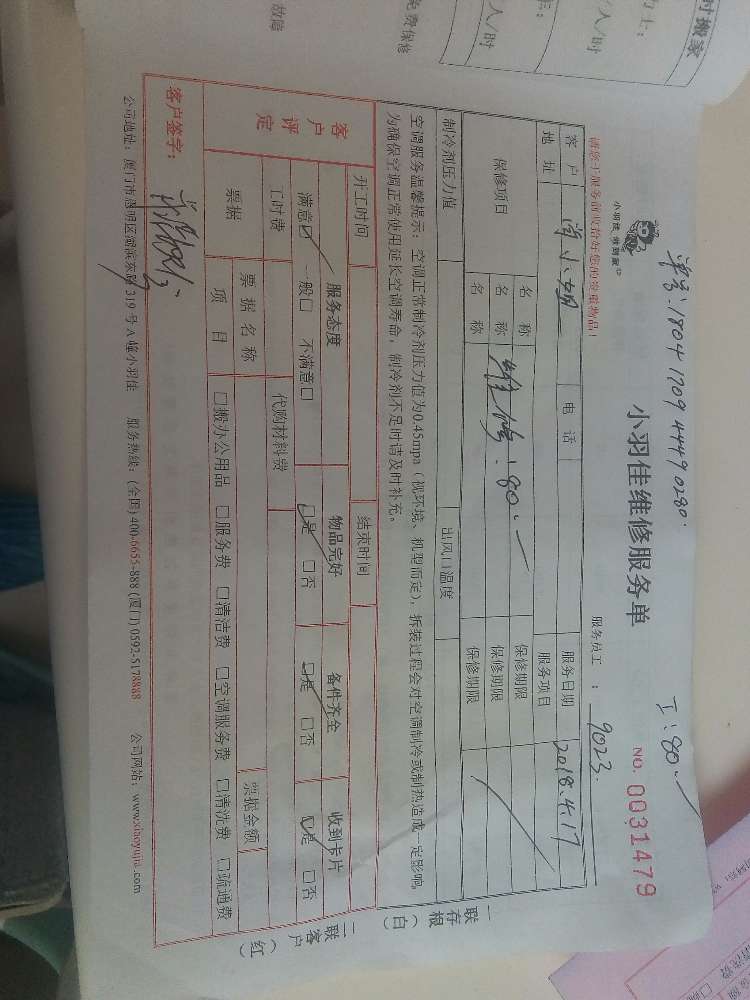 时搬家
/人/时
人/时
免费保修
故障
单号:1804 1709 4449 0280.
工:80.
小羽佳 快到家
小羽佳维修服务单
NO. 0031479
请您于服务前收拾好您的贵重物品!
服务员工 : 9023.
客 户
小姐
电 话
服务日期
2018.4.17
地 址
服务项目
保修项目
名 称
保修期限
名 称
维修:80.
保修期限
名 称
保修期限
制冷剂压力值
出风口温度
空调服务温馨提示:空调正常制冷剂压力值为0.45mpa(视环境、机型而定),拆装过程会对空调制冷或制热造成一定影响,
为确保空调正常使用延长空调寿命,制冷剂不足时请及时补充。
一联存根(白)
二联客户(红)
客户评定
开工时间
结束时间
服务态度
物品完好
备件齐全
收到卡片
满意☑ 一般□ 不满意□
☑是 □否
☑是 □否
☑是 □否
工时费
代购材料费
票据
票 据 名 称
票据金额
项 目
□搬办公用品 □服务费 □清洁费 □空调服务费 □清洗费 □疏通费
客户签字:
公司地址:厦门市思明区湖滨东路 319 号 A 幢小羽佳 服务热线:(全国) 400-6655-888 (厦门) 0592-5178888 公司网站:www.xiaoyujia.com